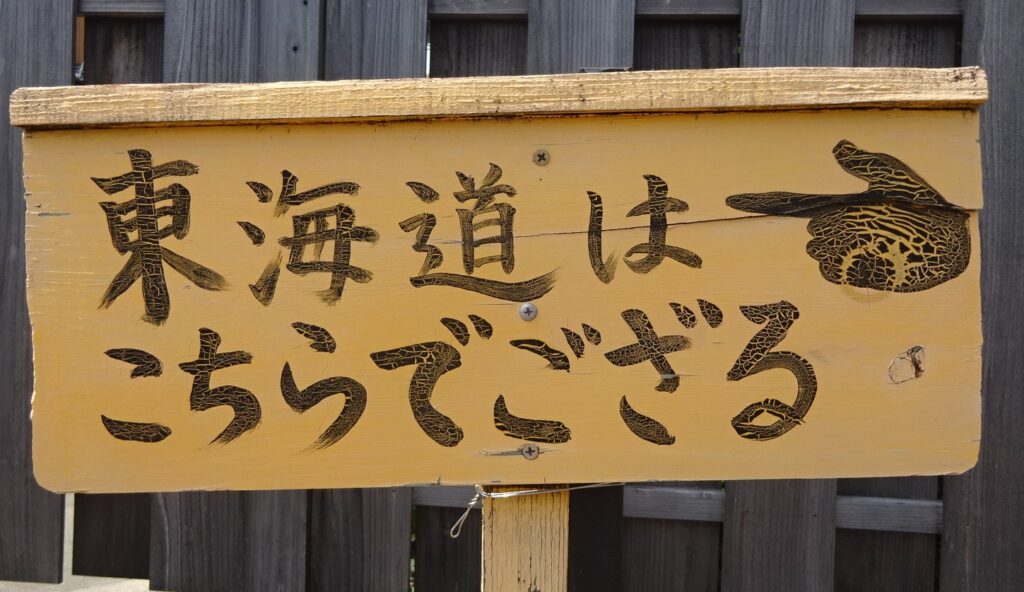 東海道は
こちらでござる